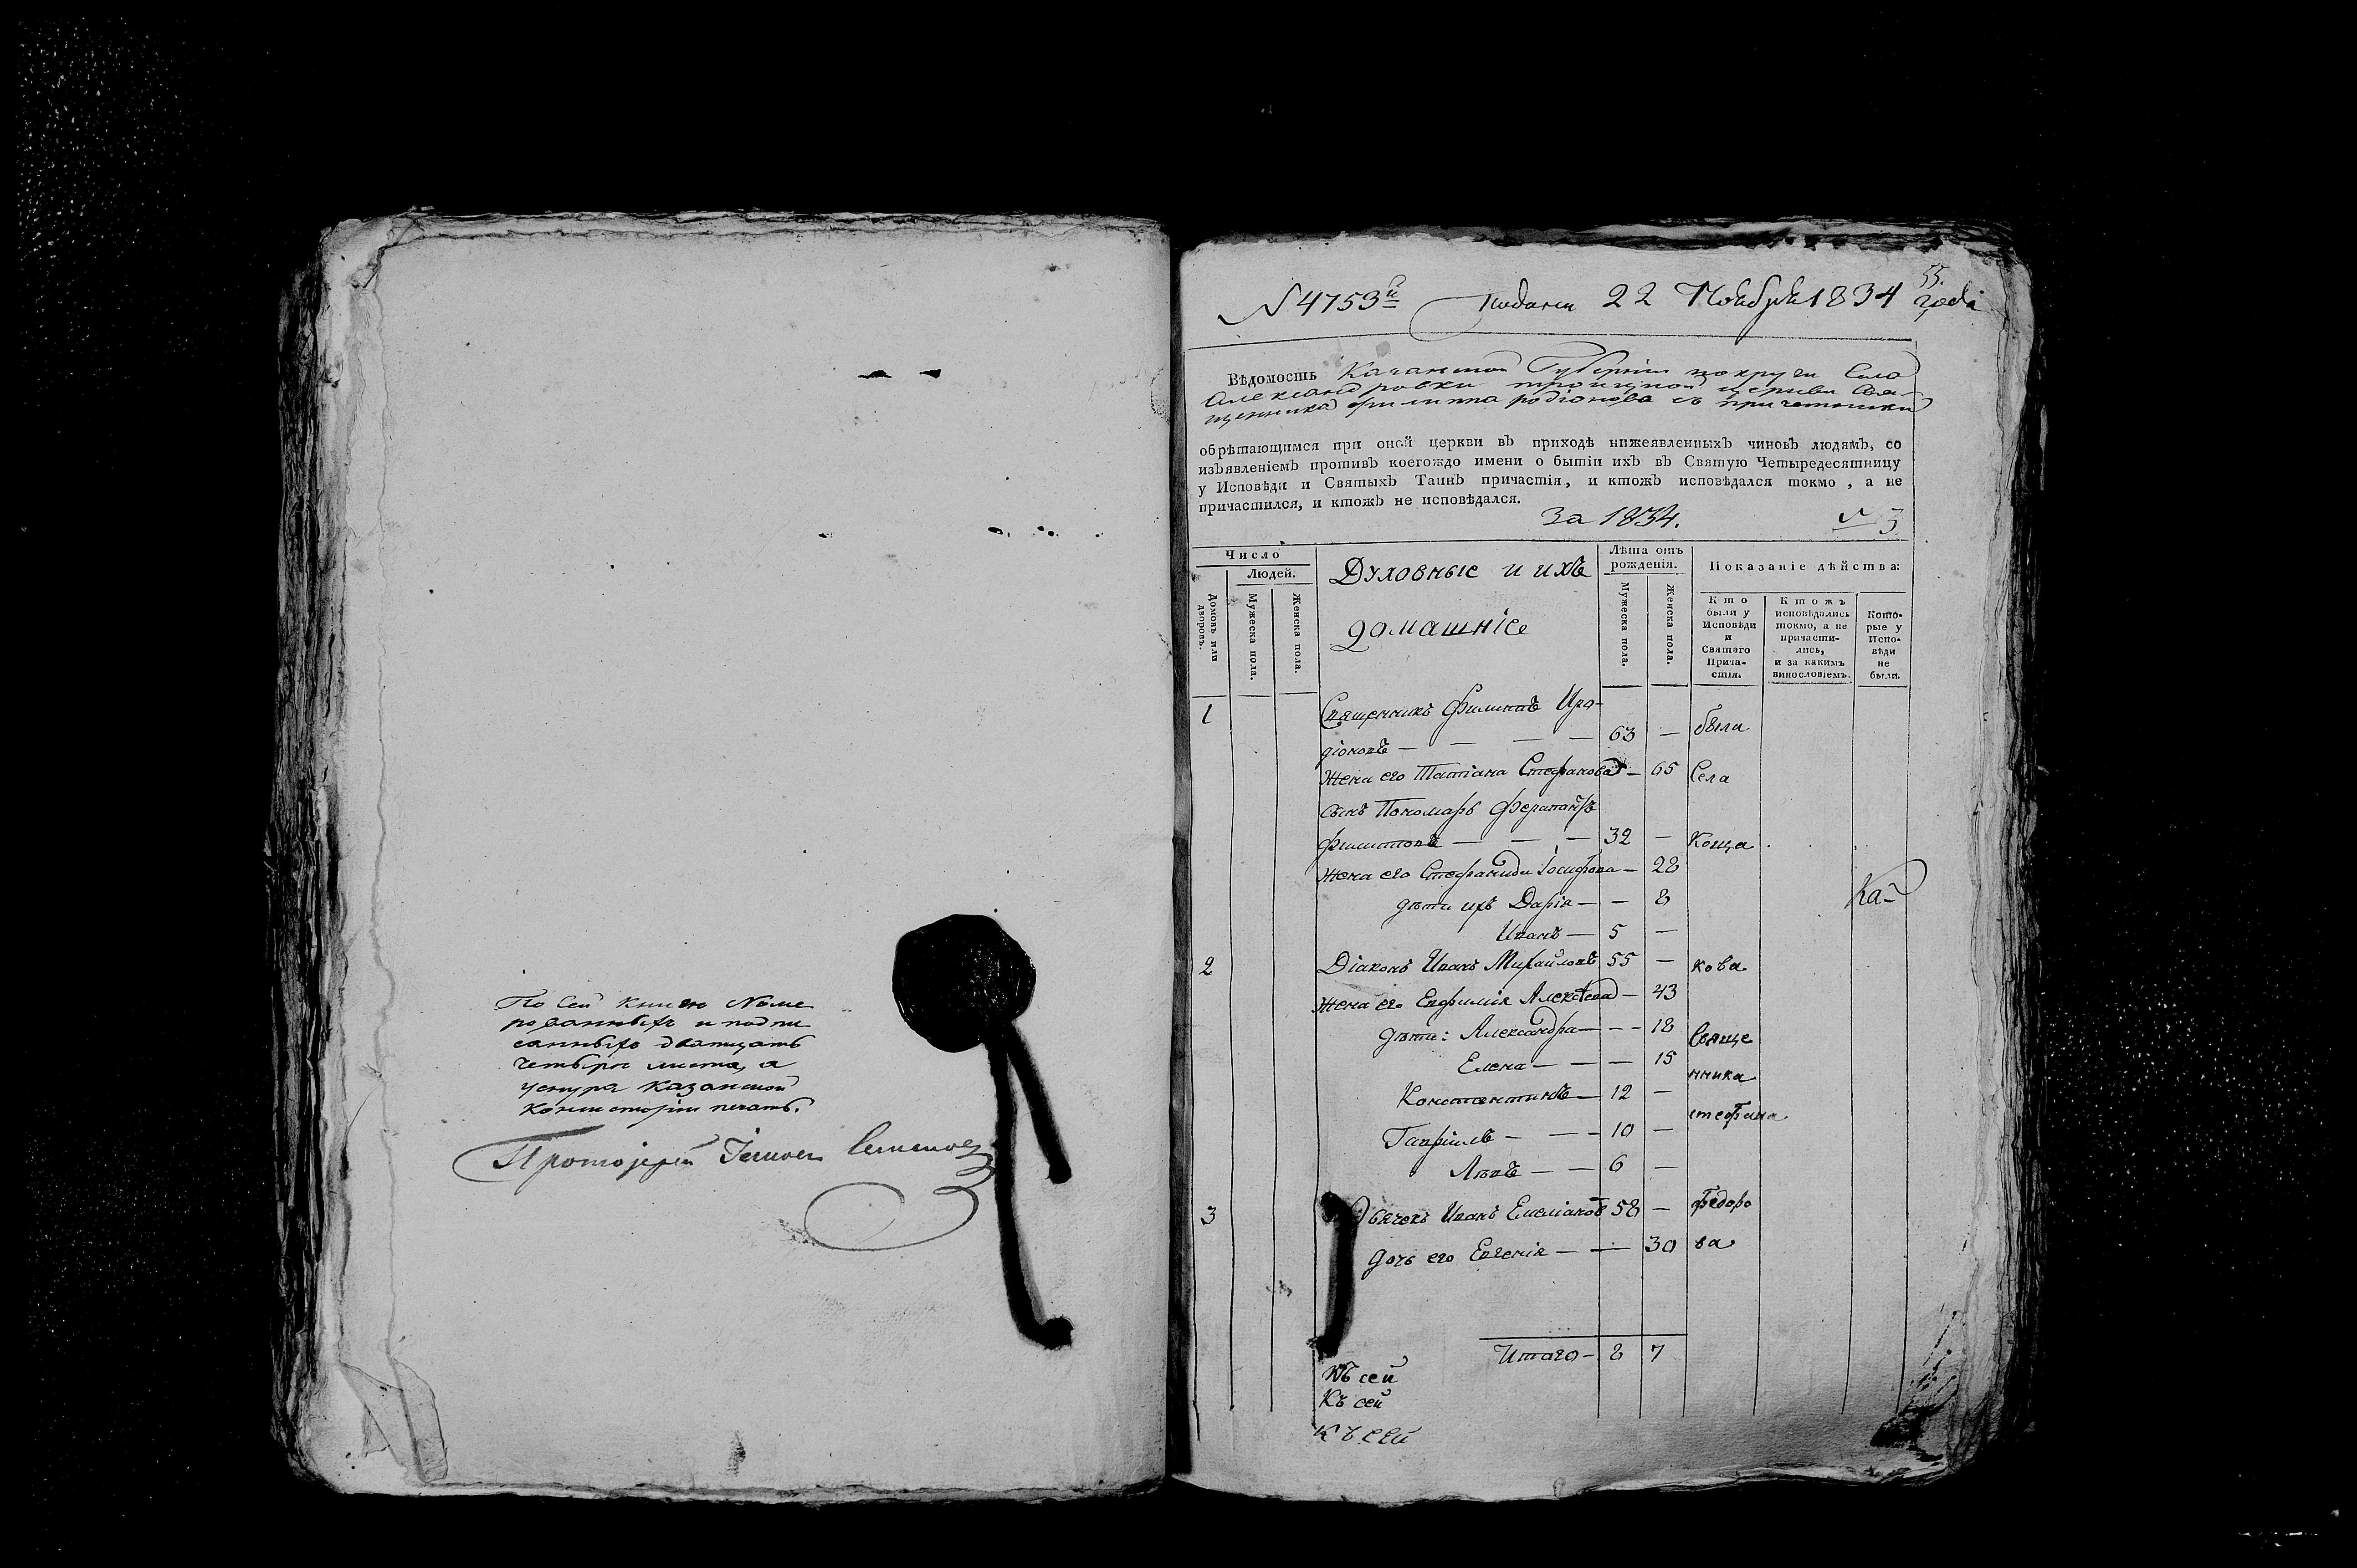 По сей книгѣ Nуме
рованныхъ и подпи
санныхъ дватцать
четыре листа, а
у снура Казанской
Консисторіи печать.
Протоіерей Семенов
55.
N 4753й подана 22 Ноября 1834 года
Вѣдомость Казанской Губерніи округи Села
Александровки троицкой церкви Свя-
щенника филиппа родіонова съ причетники
обрѣтающимся при оной церкви въ приходѣ нижеявленныхъ чиновъ людямъ, со
изъявленіемъ противъ коегождо имени о бытіи ихъ въ Святую Четыредесятницу
у Исповѣди и Святыхъ Таинъ причастія, и ктожъ исповѣдался токмо, а не
причастился, и ктожъ не исповѣдался.
За 1834. N 3
Число
Людей.
Домовъ или дворовъ.
Мужеска пола.
Женска пола.
Духовные и ихъ
домашніе
Лѣта отъ
рожденія.
Мужеска пола.
Женска пола.
Показаніе дѣйства:
Кто
были у
Исповѣди
и
Святаго
Прича-
стія.
Ктожъ
исповѣдались
токмо, а не
причасти-
лись,
и за какимъ
винословіемъ.
Кото-
рые у
Испо-
вѣди
не
были.
1 Священникъ Филиппъ Иро-
діоновъ — — — — 63 — была
Жена его Татіана Стефанова — 65 Села
сынъ Пономарь Ферапонтъ
Филипповъ — — — 32 — Коща
Жена его Стефанида Іосифова — 28
дѣти ихъ Дарія — — 8 Ка
Иванъ — 5 —
2 Діаконъ Иванъ Михайловъ 55 — кова
Жена его Евфимія Алексѣева — 43
дѣти: Александра — — — 18 Свяще
Елена — — — 15
нника
Константинъ — 12 —
стефана
Гавріилъ — — — 10 —
Левъ — — 6 —
3 Дьячекъ Иванъ Емеліановъ 58 — Федоро
дочь его Евгенія — — 30 ва
Итого — 8 7
Къ сей
Къ сей
Къ сей